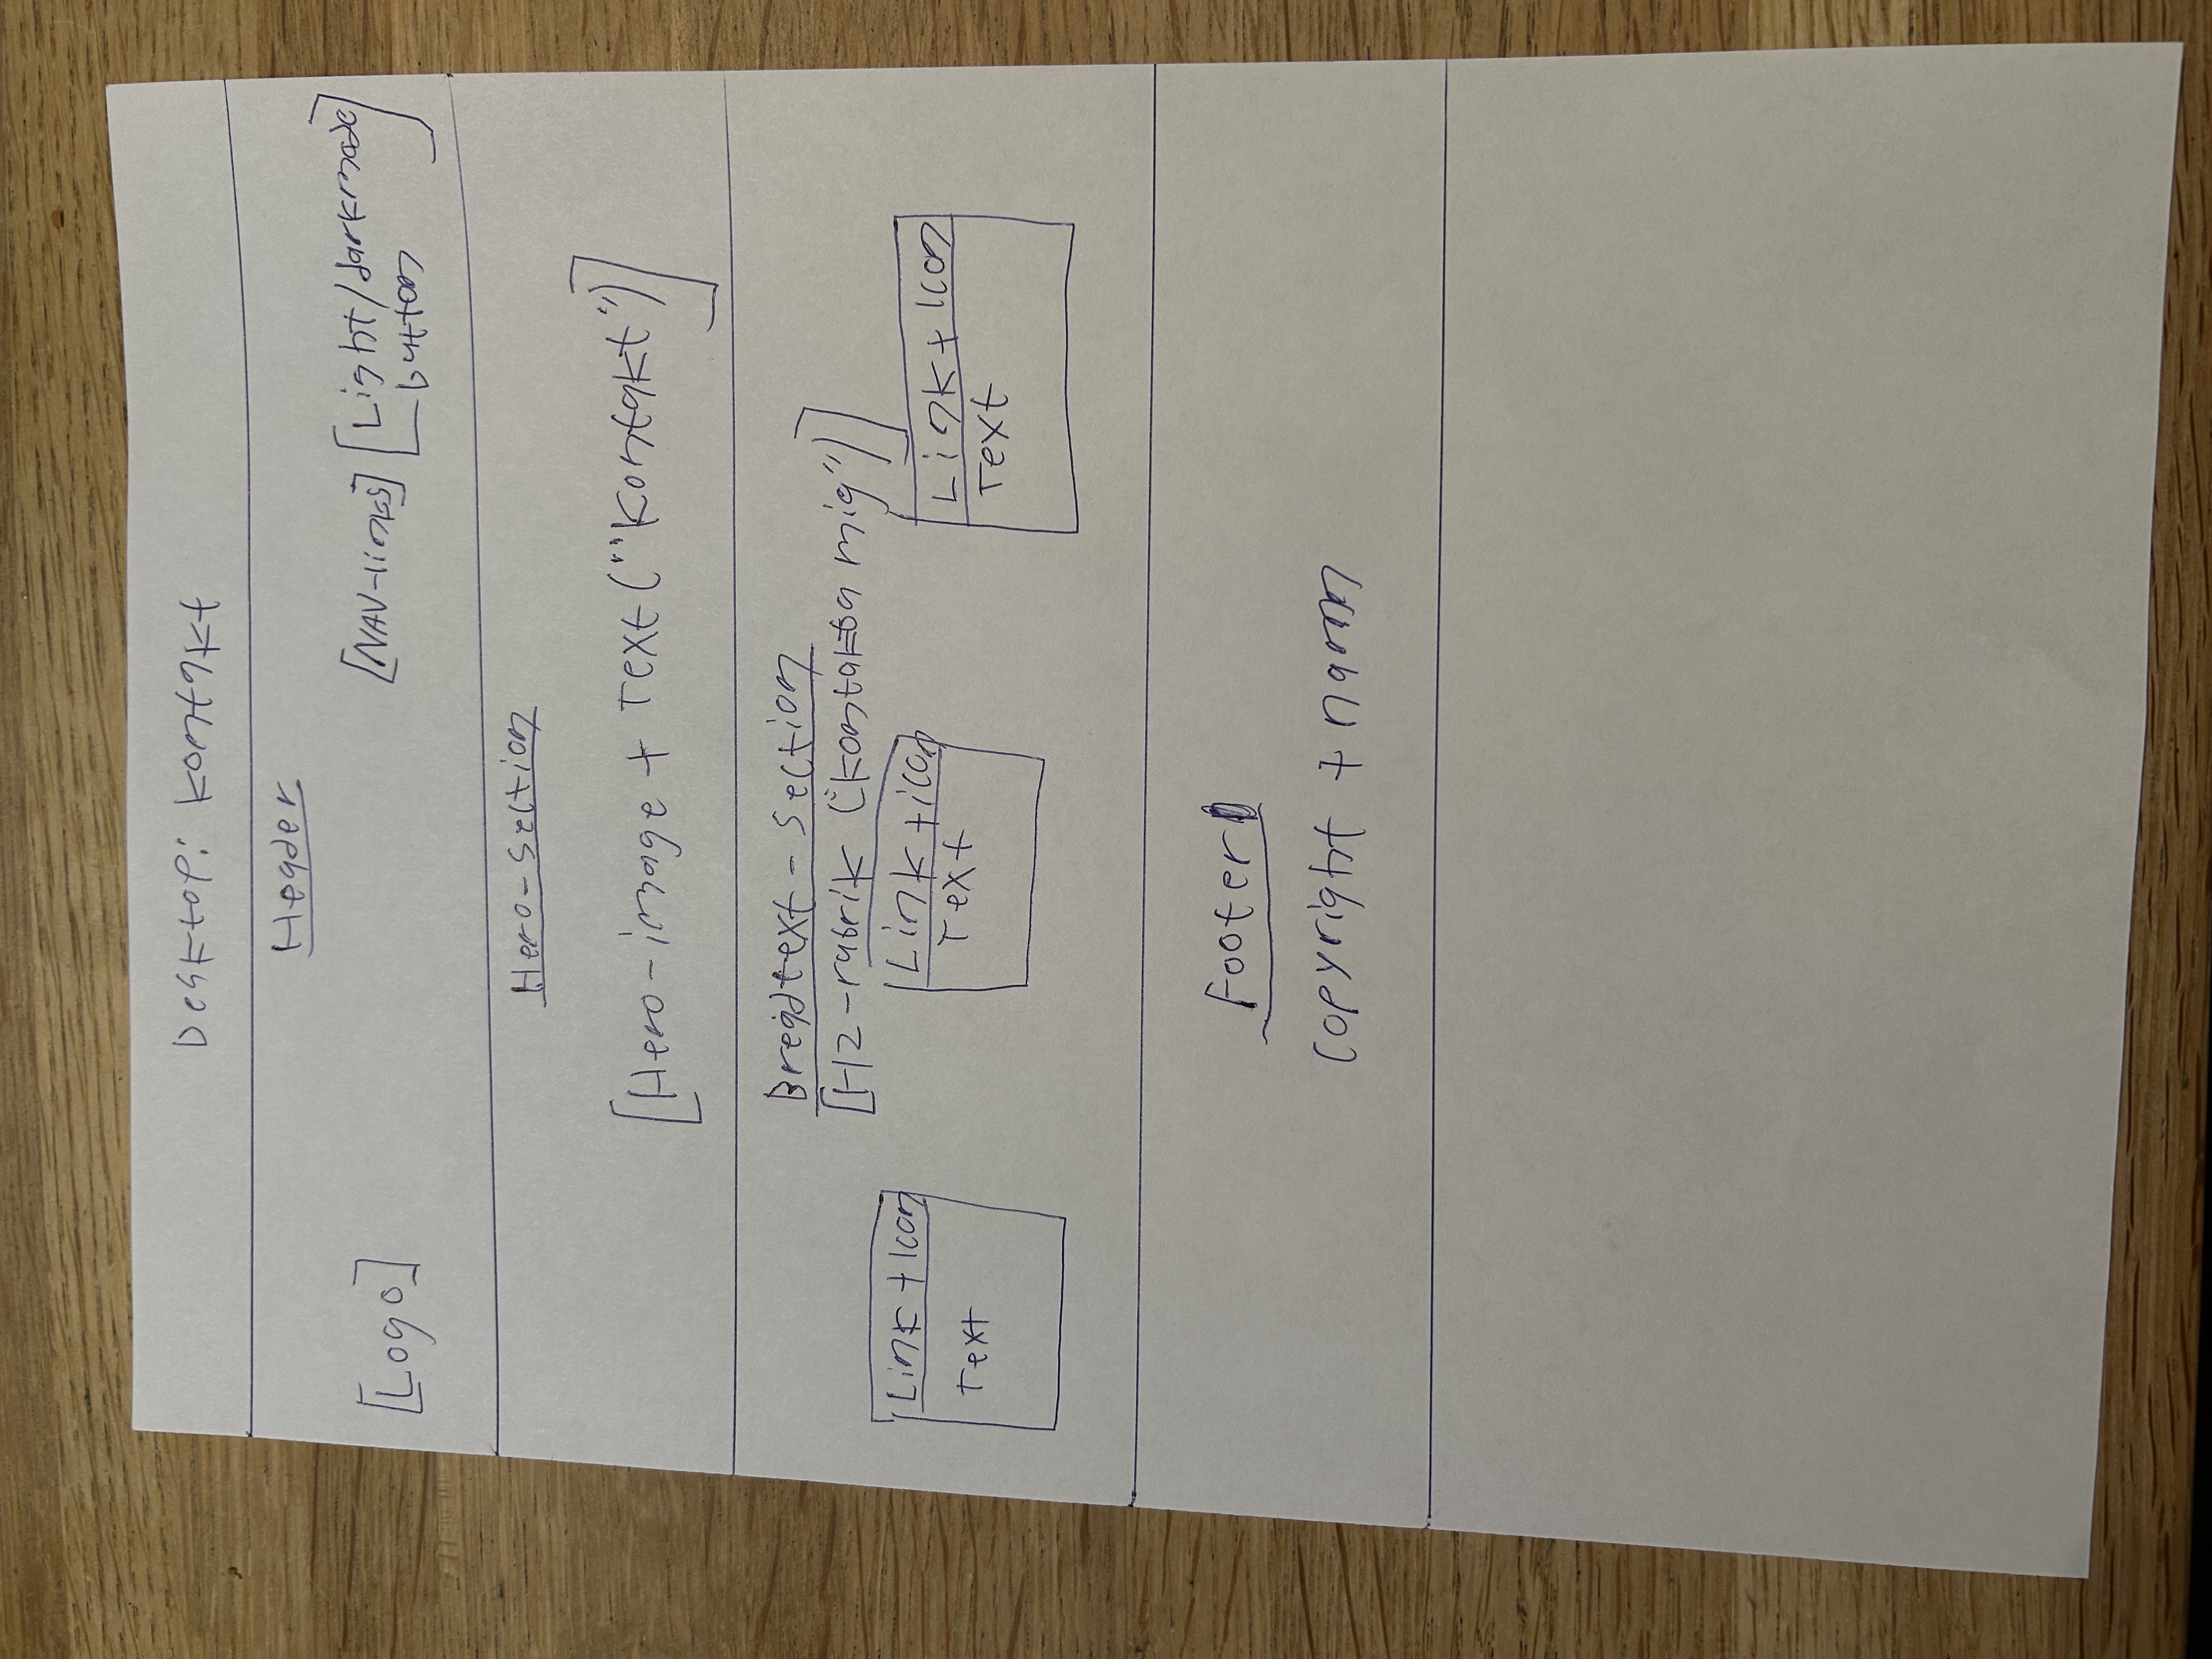 Desktop: Kontakt
Header
[Logo]
[NAV-links] [Light/darkmode
button]
Hero-section
[Hero-image + Text (""Kontakt")]
Breadtext-section
[H2-rubrik ("Kontakta mig")]
Link + Icon
Text
Link + icon
Text
Link + Icon
Text
Footer
Copyright + namn